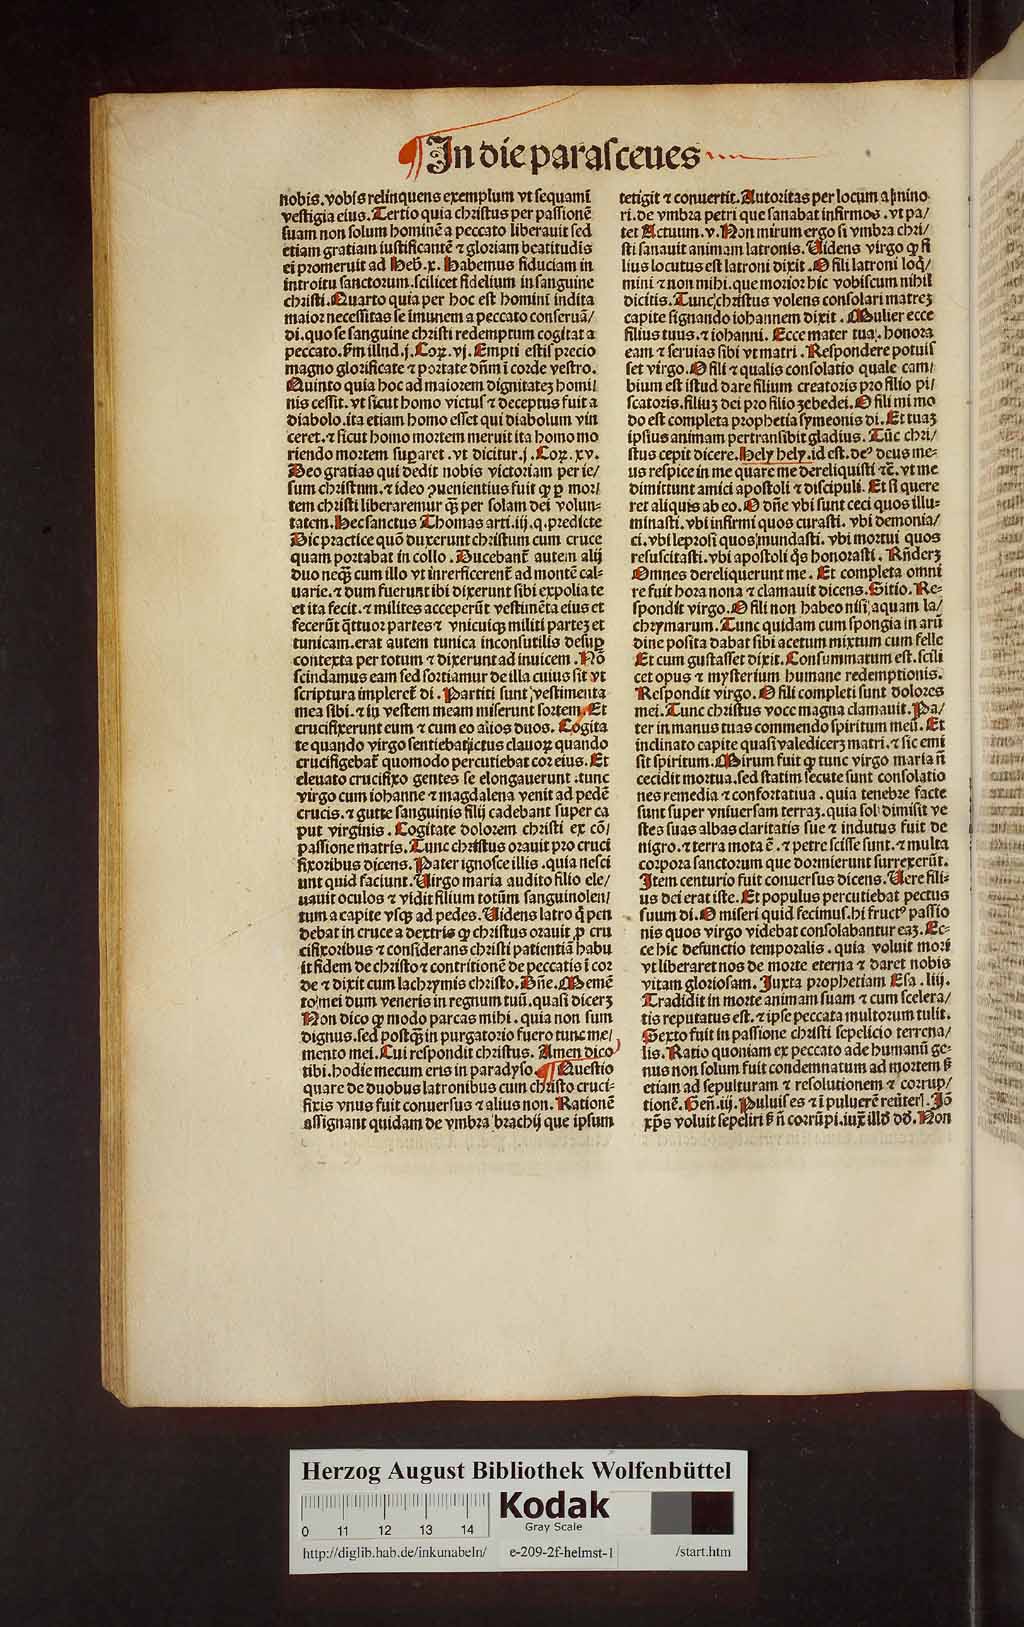 In die parasceues
nobis. vobis relinquens exemplum vt sequamī
vestigia eius. Tertio quia christus per passionē
suam non solum hominē a peccato liberauit sed
etiam gratiam iustificantē ⁊ gloriam beatitudis
ei promeruit ad Heb̄. x. Habemus fiduciam in
introitu sanctorum. scilicet fidelium in sanguine
christi. Quarto quia per hoc est homini indita
maior necessitas se imunem a peccato conseruā/
di. quo se sanguine christi redemptum cogitat a
peccato. s̄m illnd. j. Coꝝ. vj. Empti estis precio
magno glorificate ⁊ portate dn̄m ī corde vestro.
Quinto quia hoc ad maiorem dignitateꝫ homi/
nis cessit. vt sicut homo victus ⁊ deceptus fuit a
diabolo. ita etiam homo esset qui diabolum vin
ceret. ⁊ sicut homo mortem meruit ita homo mo
riendo mortem suꝑaret. vt dicitur. j. Coꝝ. xv.
Deo gratias qui dedit nobis victoriam per ie/
sum christnm. ⁊ ideo ꝯuenientius fuit ꝙ ꝑ mor/
tem christi liberaremur qꝫ̄ per solam dei volun-
tatem. Hec sanctus Thomas arti. iij. q. predicte
Hic practice quō duxerunt christum cum cruce
quam portabat in collo. Ducebant̄ autem alij
duo neqꝫ̄ cum illo vt inrerficerent̄ ad montē cal-
uarie. ⁊ dum fuerunt ibi dixerunt sibi expolia te
et ita fecit. ⁊ milites acceperūt vestimēta eius et
fecerūt q̄ttuor partes ⁊ vnicuiqꝫ militi parteꝫ et
tunicam. erat autem tunica inconsutilis desuꝑ
contexta per totum ⁊ dixerunt ad inuicem. Nō
scindamus eam sed sortiamur de illa cuius sit vt
scriptura impleret̄ di. Partiti sunt vestimenta
mea sibi. ⁊ in vestem meam miserunt sortem. Et
crucifixerunt eum ⁊ cum eo alios duos. Cogita
te quando virgo sentiebat ictus clauoꝝ quando
crucifigebat̄ quomodo percutiebat cor eius. Et
eleuato crucifixo gentes se elongauerunt. tunc
virgo cum iohanne ⁊ magdalena venit ad pedē
crucis. ⁊ gutte sanguinis filij cadebant super ca
put virginis. Cogitate dolorem christi ex cō/
passione matris. Tunc christus orauit pro cruci
fixoribus dicens. Pater ignosce illis. quia nesci
unt quid faciunt. Virgo maria audito filio ele/
uauit oculos ⁊ vidit filium totūm sanguinolen/
tum a capite vsqꝫ ad pedes. Uidens latro q̇ pen
debat in cruce a dextris ꝙ christus orauit ꝓ cru
cifixoribus ⁊ considerans christi patientiā habu
it fidem de christo ⁊ contritionē de peccatis ī cor
de ⁊ dixit cum lachrymis christo. Dn̄e. Memē
to mei dum veneris in regnum tuū. quasi dicerꝫ
Non dico ꝙ modo parcas mihi. quia non sum
dignus. sed postqꝫ̄ in purgatorio fuero tunc me/
mento mei. Cui respondit christus. Amen dico
tibi. hodie mecum eris in paradyso. Questio
quare de duobus latronibus cum christo cruci-
fixis vnus fuit conuersus ⁊ alius non. Rationē
assignant quidam de vmbra brachij que ipsum
tetigit ⁊ conuertit. Autoritas per locum a mino
ri. de vmbra petri que sanabat infirmos. vt pa/
tet Actuum. v. Non mirum ergo si vmbra chri/
sti sanauit animam latronis. Uidens virgo ꝙ fi
lius locutus est latroni dixit. O fili latroni loq̇/
mini ⁊ non mihi. que morior hic vobiscum nihil
dicitis. Tunc christus volens consolari matreꝫ
capite signando iohannem dixit. Mulier ecce
filius tuus. ⁊ iohanni. Ecce mater tua. honora
eam ⁊ seruias sibi vt matri. Respondere potuis
set virgo. O fili ⁊ qualis consolatio quale cam/
bium est istud dare filium creatoris pro filio pi/
scatoris. filiuꝫ dei pro filio zebedei. O fili mi mo
do est completa prophetia symeonis di. Et tuaꝫ
ipsius animam pertransibit gladius. Tūc chri/
stus cepit dicere. Hely hely. id est. deꝰ deus me-
us respice in me quare me dereliquisti ⁊c̄. vt me
dimittunt amici apostoli ⁊ discipuli. Et si quere
ret aliquis ab eo. O dn̄e vbi sunt ceci quos illu-
minasti. vbi infirmi quos curasti. vbi demonia/
ci. vbi leprosi quos mundasti. vbi mortui quos
resuscitasti. vbi apostoli q̇s honorasti. Rn̄derꝫ
Omnes dereliquerunt me. Et completa omni
re fuit hora nona ⁊ clamauit dicens. Sitio. Re-
spondit virgo. O fili non habeo nisi aquam la/
chrymarum. Tunc quidam cum spongia in arū
dine posita dabat sibi acetum mixtum cum felle
Et cum gustasset dixit. Consummatum est. scili
cet opus ⁊ mysterium humane redemptionis.
Respondit virgo. O fili completi sunt dolores
mei. Tunc christus voce magna clamauit. Pa/
ter in manus tuas commendo spiritum meū. Et
inclinato capite quasi valedicerꝫ matri. ⁊ sic emi
sit spiritum. Mirum fuit ꝙ tunc virgo maria n̄
cecidit mortua. sed statim secute sunt consolatio
nes remedia ⁊ confortatiua. quia tenebre facte
sunt super vniuersam terraꝫ. quia sol dimisit ve
stes suas albas claritatis sue ⁊ indutus fuit de
nigro. ⁊ terra mota ē. ⁊ petre scisse sunt. ⁊ multa
corpora sanctorum que dormierunt surrexerūt.
Item centurio fuit conuersus dicens. Vere fili-
us dei erat iste. Et populus percutiebat pectus
suum di. O miseri quid fecimus. hi fructꝰ passio
nis quos virgo videbat consolabantur eaꝫ. Ec-
ce hic defunctio temporalis. quia voluit mori
vt liberaret nos de morte eterna ⁊ daret nobis
vitam gloriosam. Juxta prophetiam Esa. liij.
Tradidit in morte animam suam ⁊ cum scelera/
tis reputatus est. ⁊ ipse peccata multorum tulit.
Sexto fuit in passione christi sepelicio terrena/
lis. Ratio quoniam ex peccato ade humanū ge-
nus non solum fuit condemnatum ad mortem s̄
etiam ad sepulturam ⁊ resolutionem ⁊ corrup/
tionē. Gen̄. iij. Puluis es ⁊ ī puluerē reūteris. Jō
xp̄s voluit sepeliri s̄ n̄ corrūpi. iux̄ illđ dđ. Non
Herzog August Bibliothek Wolfenbüttel
Kodak
Gray Scale
0 11 12 13 14
http://diglib.hab.de/inkunabeln/ e-209-2f-helmst-1 /start.htm